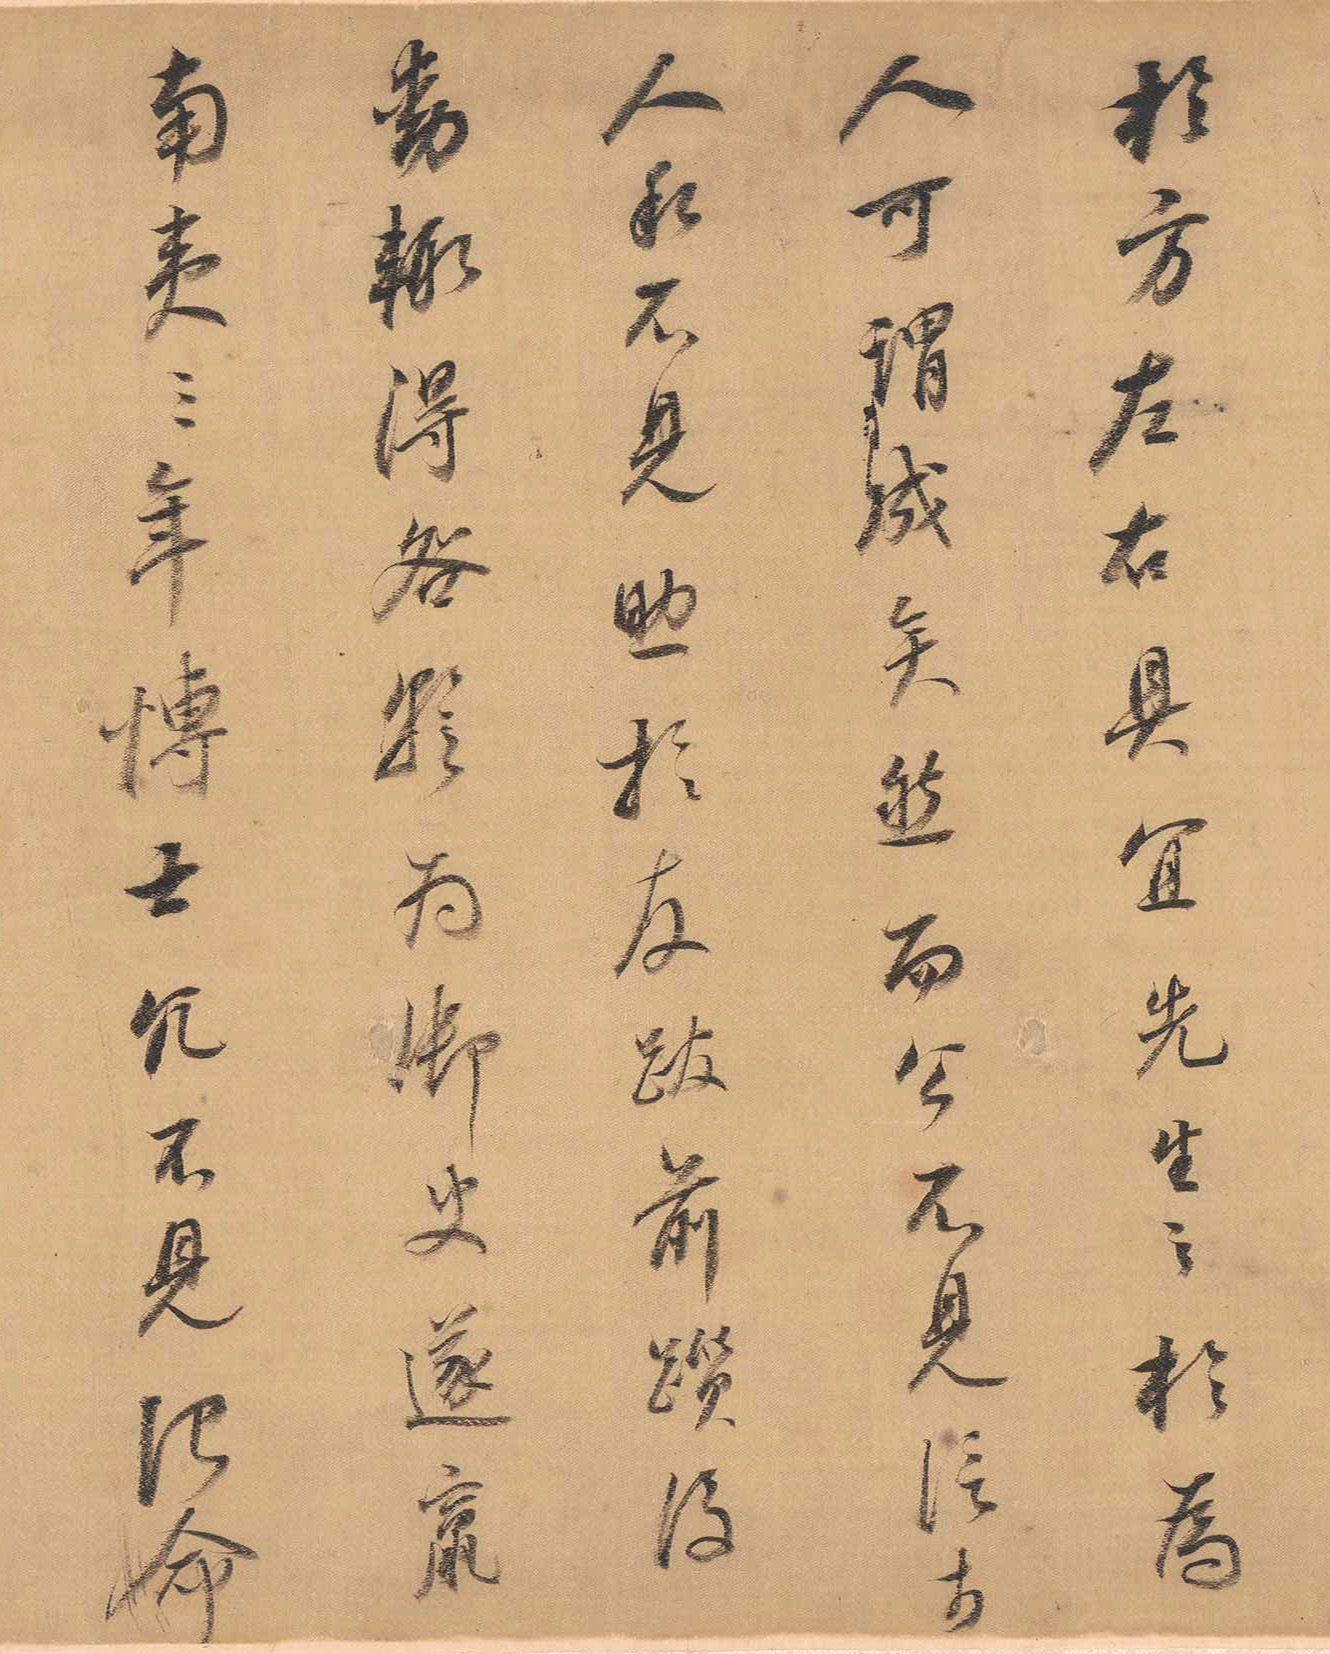 於方左右具宜先生之於為
人可謂成矣然而公不見信於
人私不見助於友跋前躓後
動輒得咎暫為御史遂竄
南夷三年博士冗不見治命